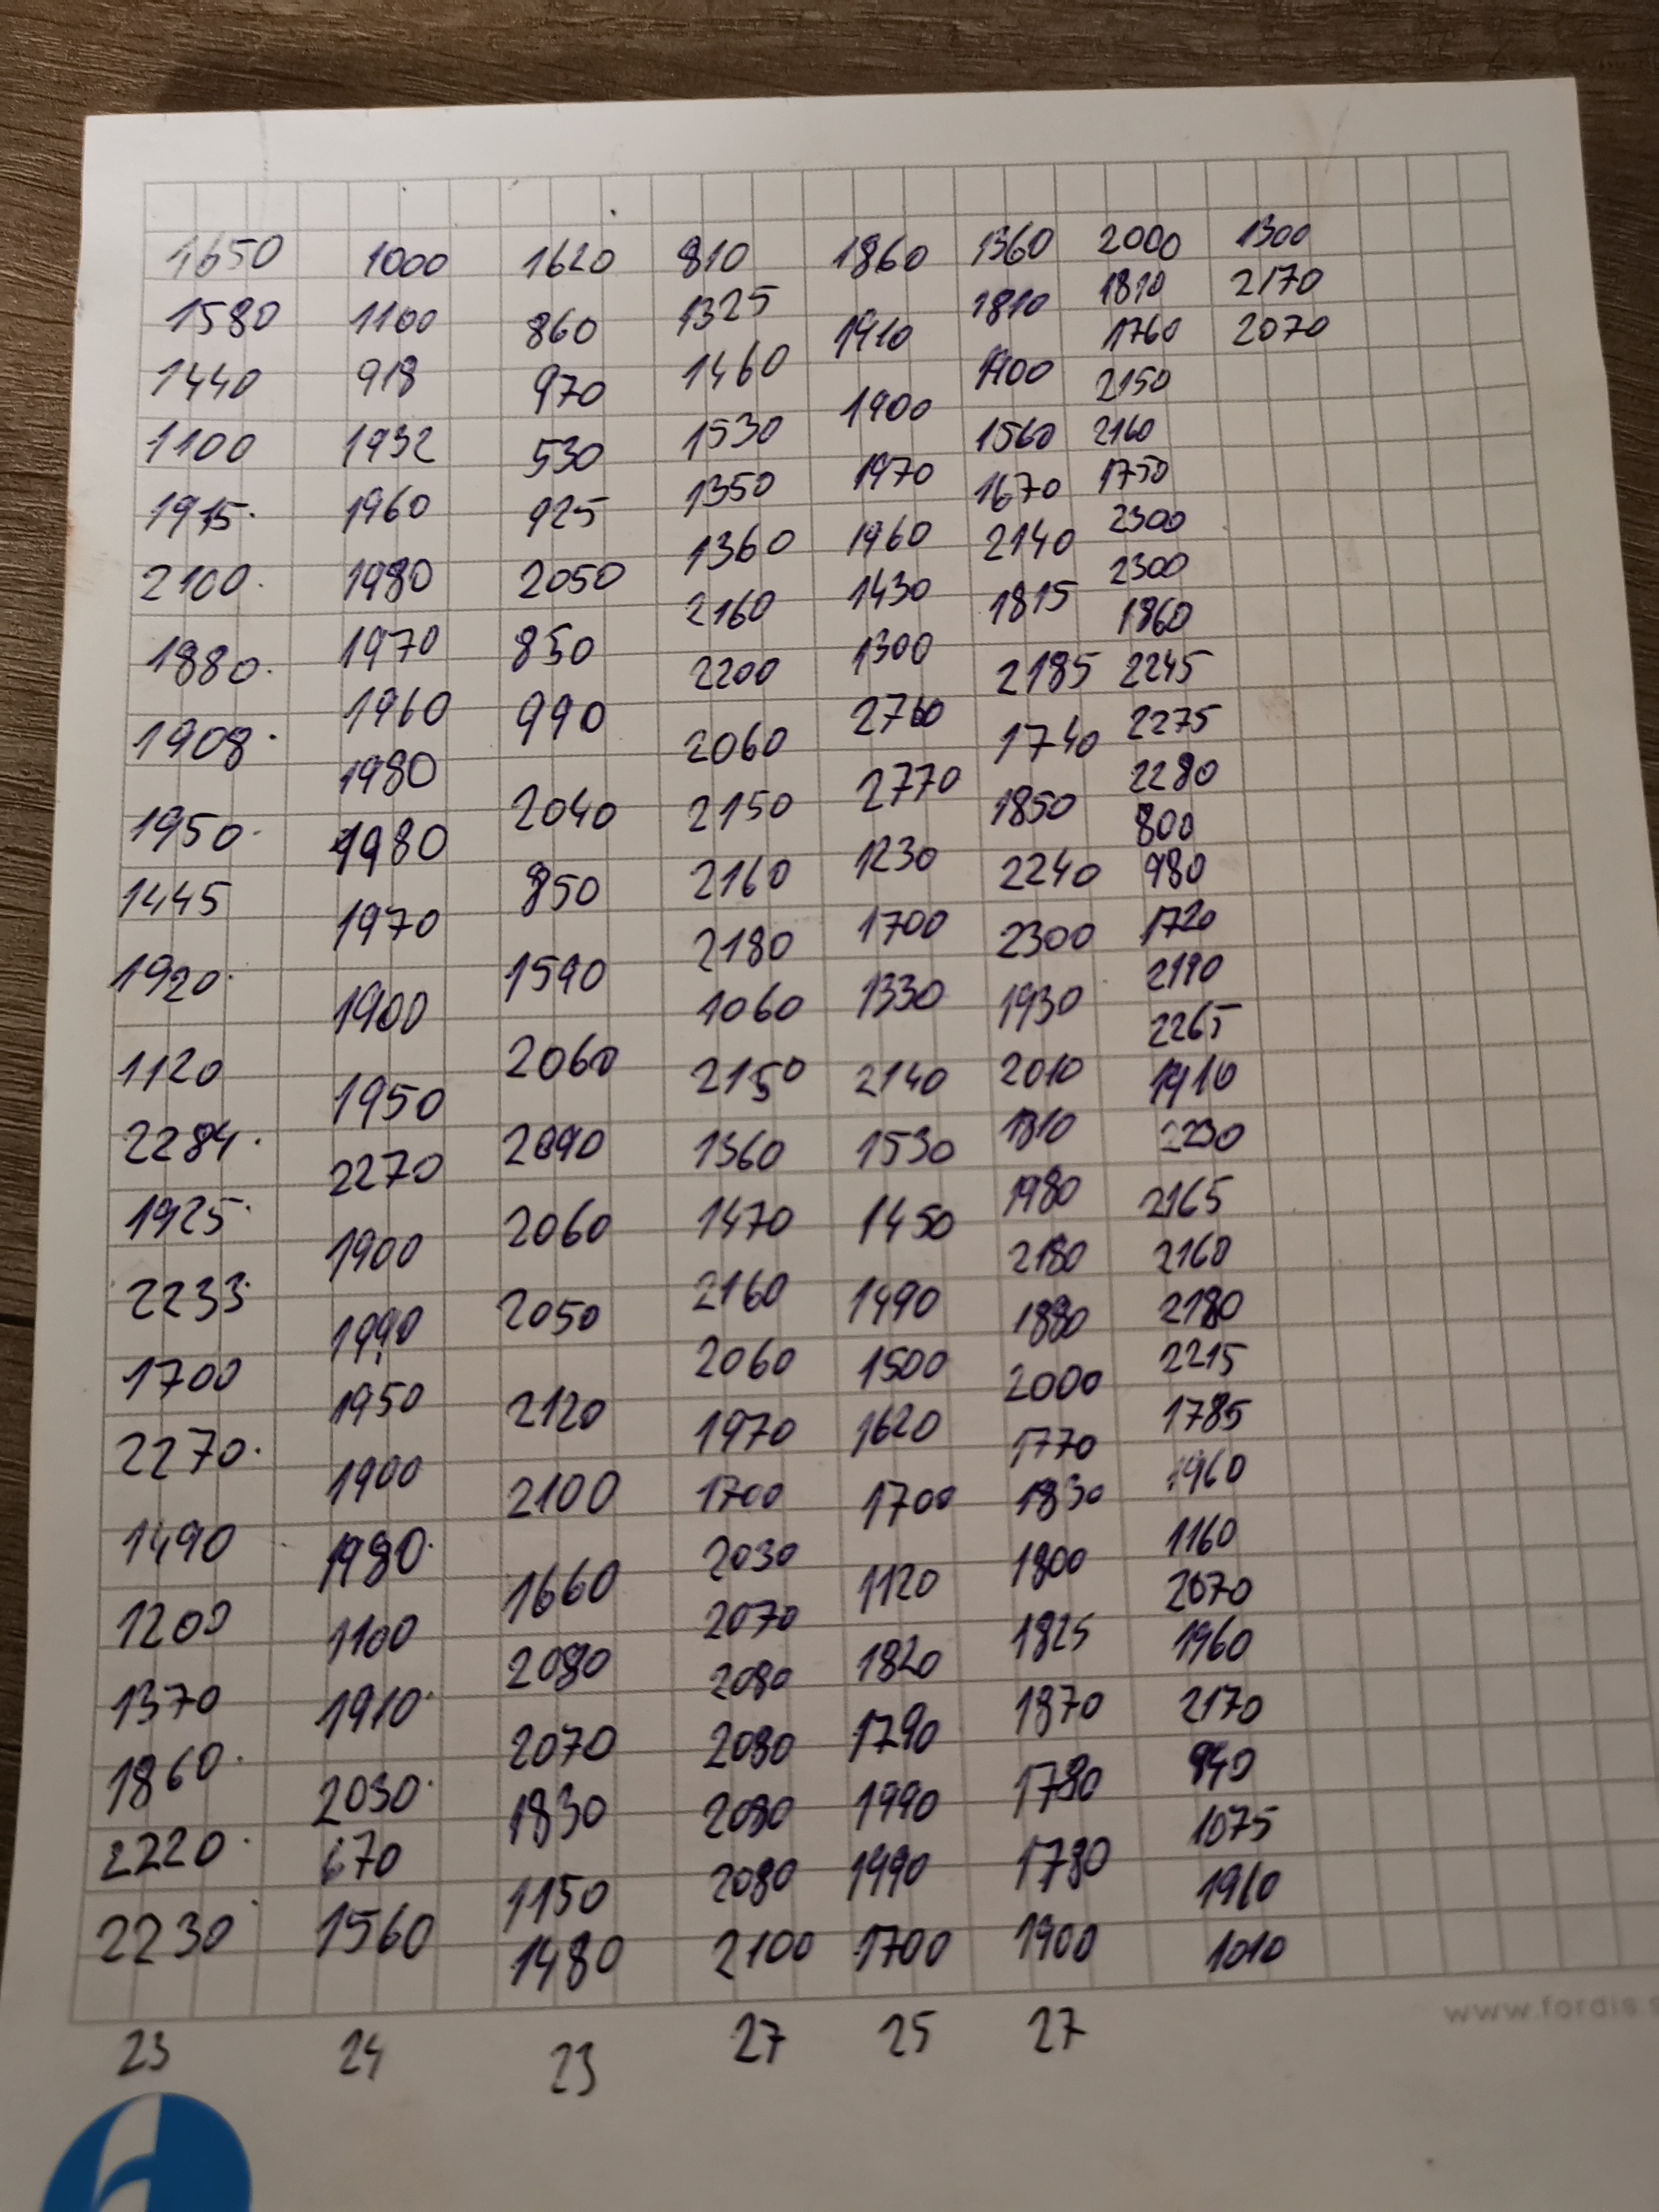 1650
1580
1440
1100
1915.
2100.
1880.
1908.
1950.
1445
1920.
1120
2284.
1925.
2233.
1700
2270.
1490
1200
1370
1860.
2220.
2230
23
1000
1100
918
1932
1960
1980
1970
1960
1980
1980
1970
1900
1950
2270
1900
1990
1950
1900
1980.
1100
1910.
2030.
670
1560
24
1620
860
970
530
925
2050
850
990
2040
850
1590
2060
2090
2060
2050
2120
2100
1660
2080
2070
1830
1150
1480
23
810
1325
1460
1530
1350
1360
2160
2200
2060
2150
2160
2180
1060
2150
1360
1470
2160
2060
1970
1700
2030
2070
2080
2080
2080
2080
2100
27
1860
1910
1900
1970
1960
1430
1300
2760
2770
1230
1700
1330
2140
1530
1450
1490
1500
1620
1700
1120
1820
1790
1990
1990
1700
25
1360
1810
1900
1560
1670
2140
1815
2185
1740
1850
2240
2300
1930
2010
1810
1980
2180
1880
2000
1770
1830
1800
1825
1870
1780
1780
1900
27
2000
1810
1760
2150
2160
1750
2300
2300
1860
2245
2275
2280
800
980
1720
2190
2265
1910
2230
2165
2160
2180
2215
1785
1960
1160
2070
1960
2170
940
1075
1960
1010
1300
2170
2070
www.fordis.s